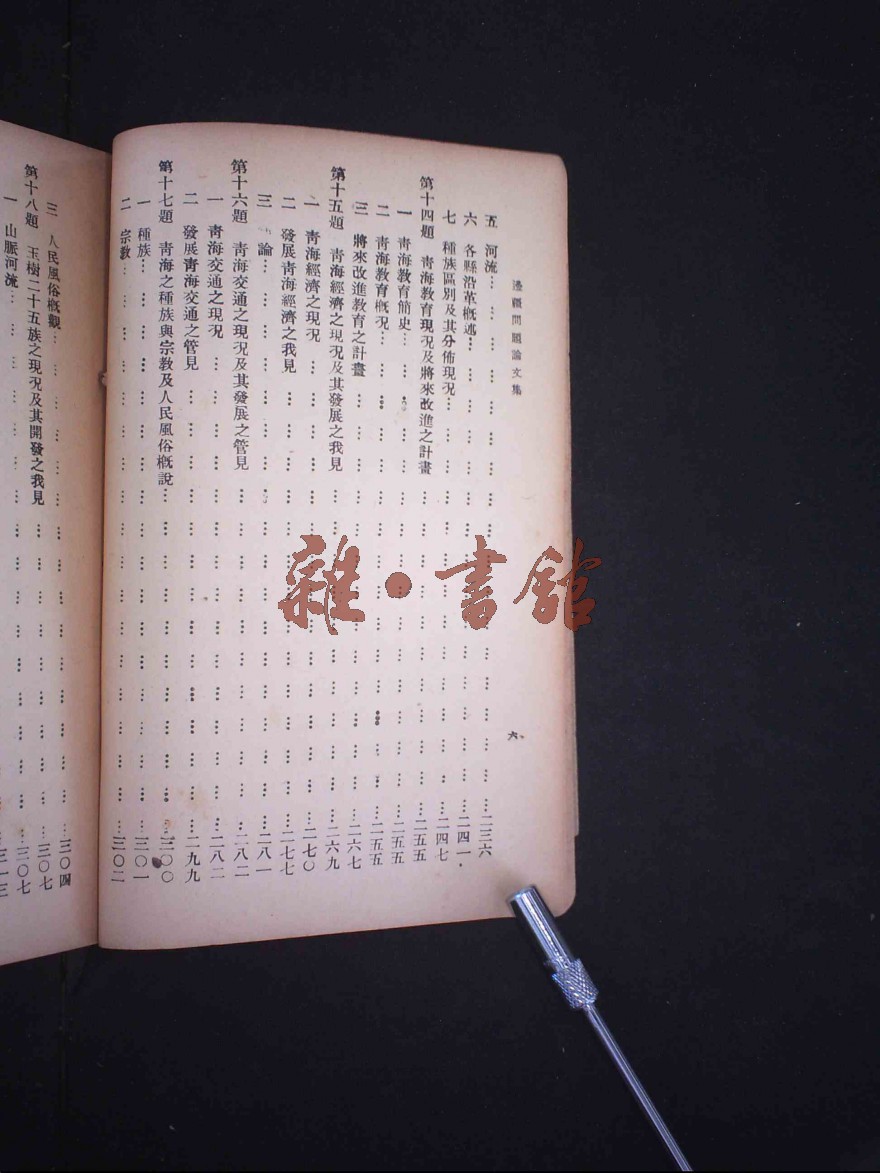 邊疆問題論文集
六
五 河流……二三六
六 各縣沿革概述……二四一
七 種族區別及其分佈現況……二四七
第十四題 青海教育現況及將來改進之計畫……二五五
一 青海教育簡史……二五五
二 青海教育概況……二五五
三 將來改進教育之計畫……二六七
第十五題 青海經濟之現況及其發展之我見……二六九
一 青海經濟之現況……二七〇
二 發展青海經濟之我見……二七七
三 論……二八一
第十六題 青海交通之現況及其發展之管見……二八二
一 青海交通之現況……二八二
二 發展青海交通之管見……二九九
第十七題 青海之種族與宗教及人民風俗概說……三〇〇
一 種族……三〇一
二 宗教……三〇二
三 人民風俗概觀……三〇四
第十八題 玉樹二十五族之現況及其開發之我見……三〇七
一 山脈河流……三〇七
三一三
雜·書館